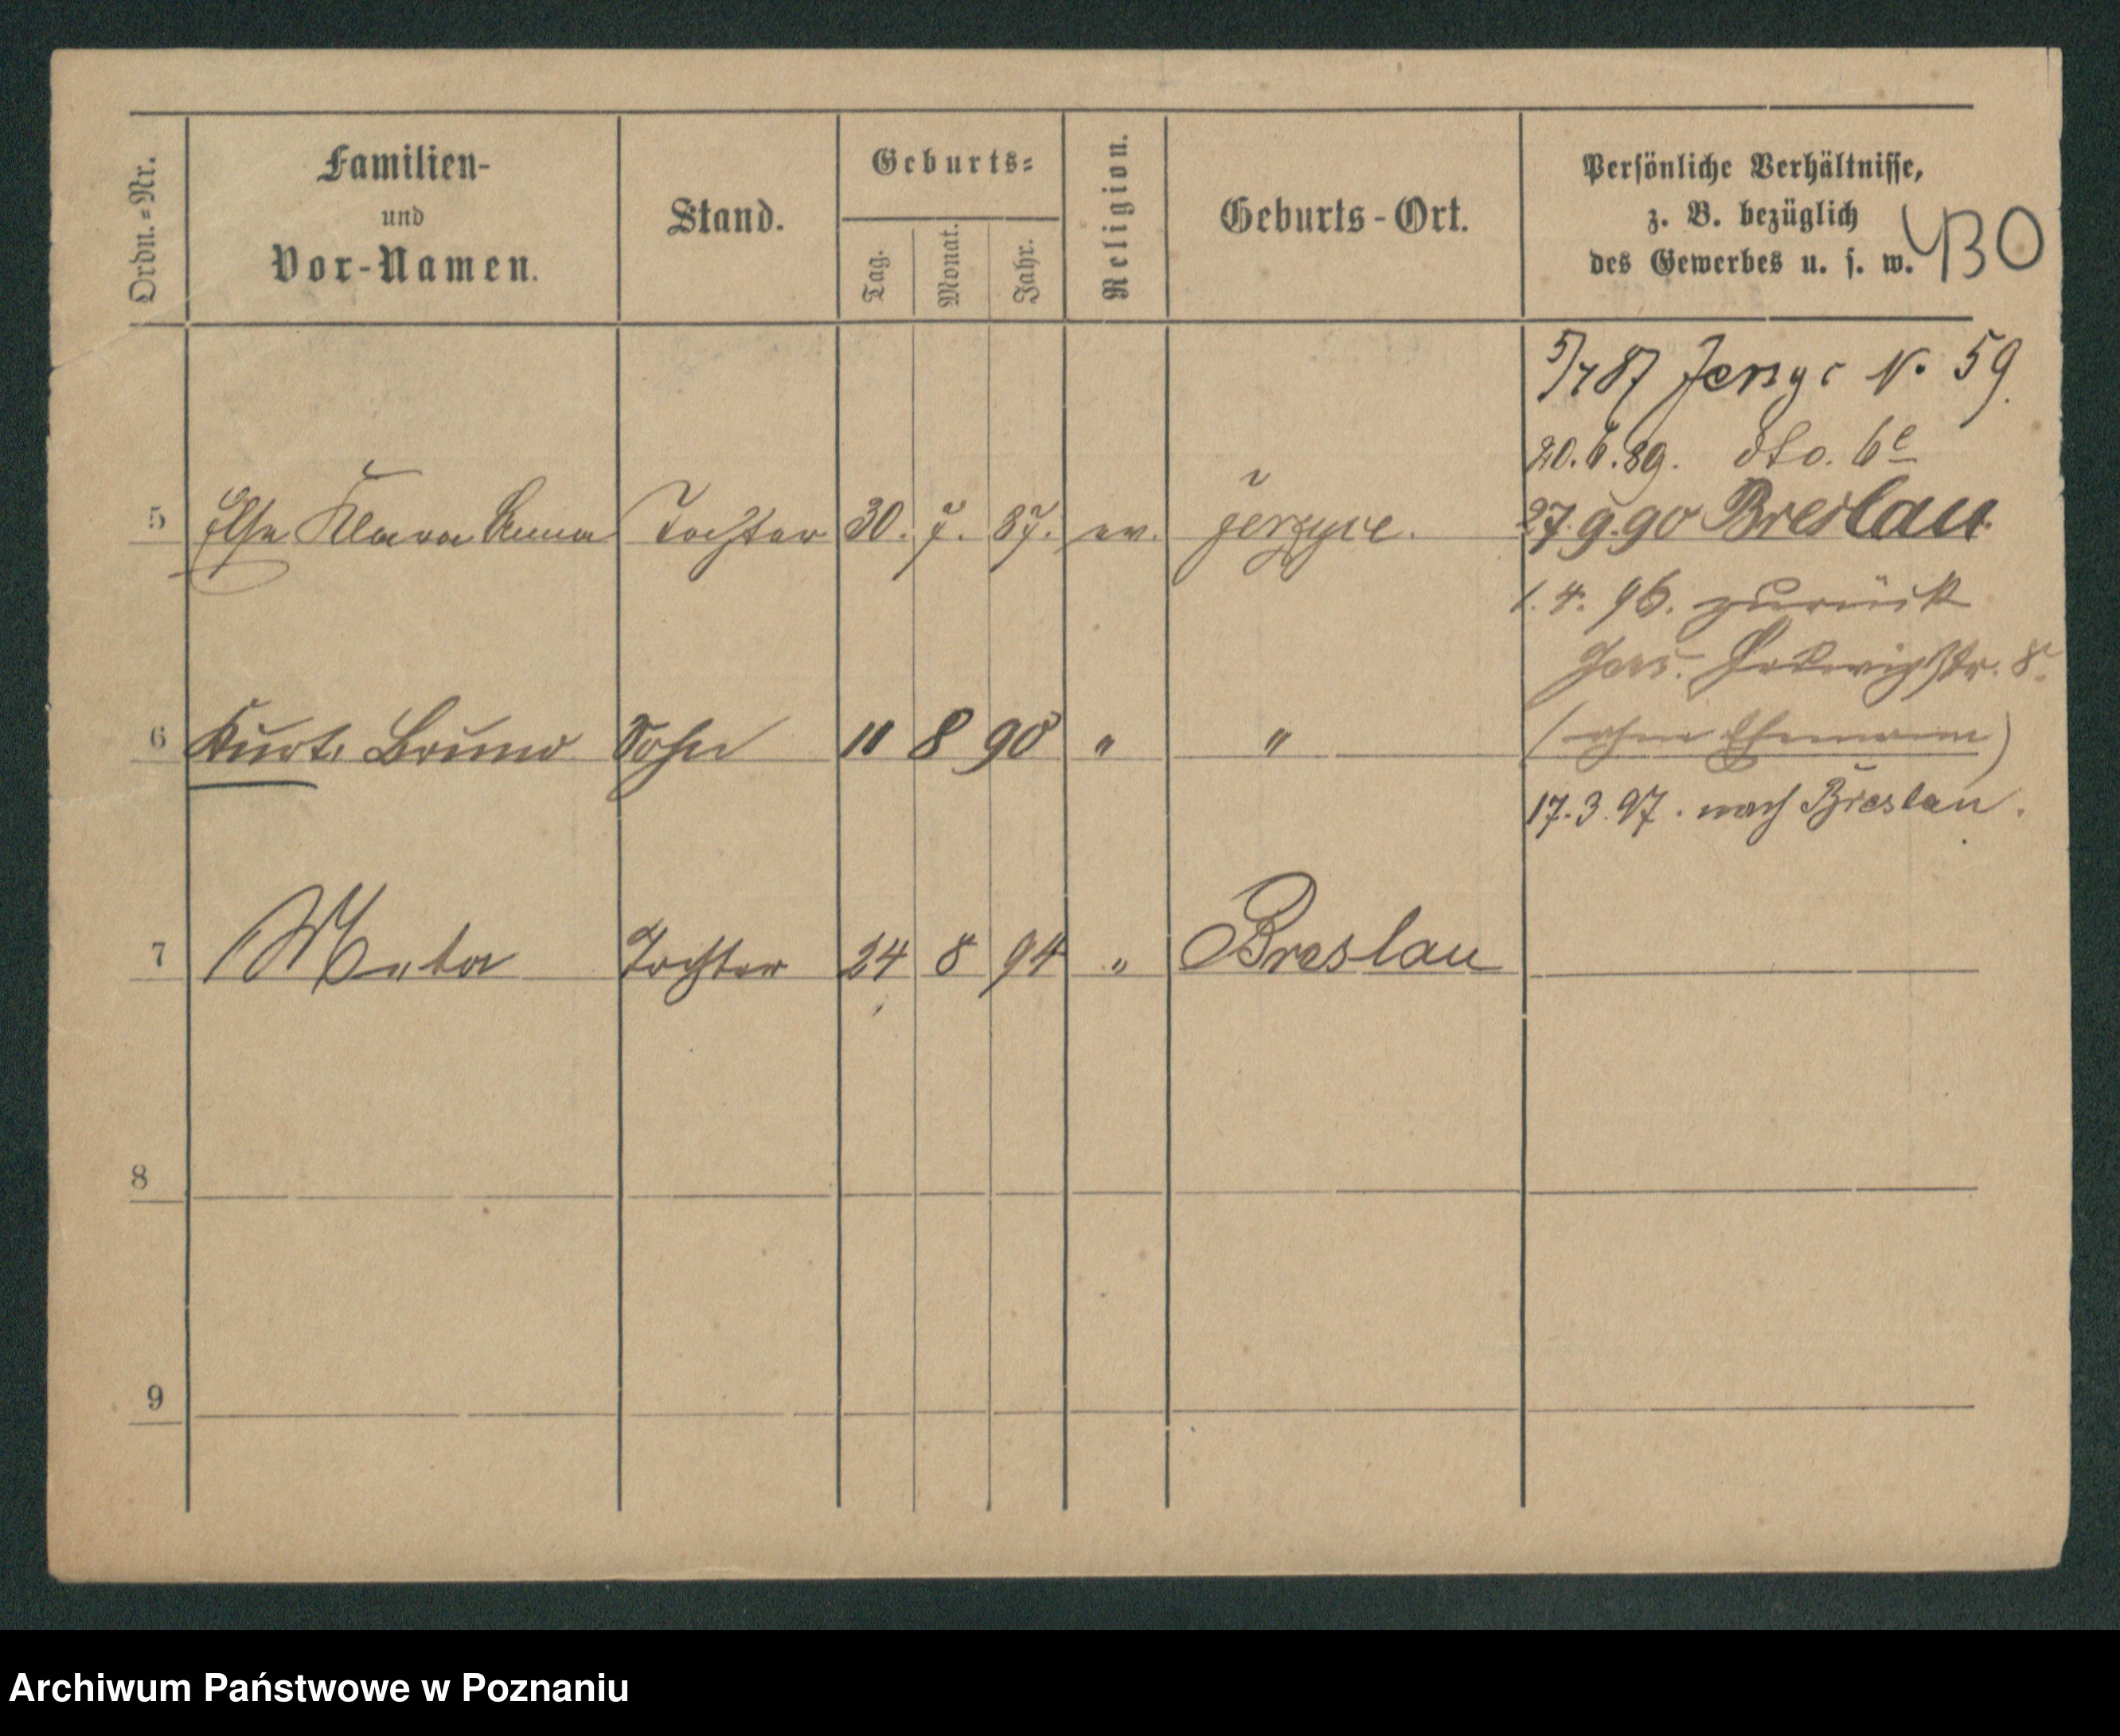 Ordn.=Nr.
Familien-
und
Vor-Namen.
Stand.
Geburts=
Tag.
Monat.
Jahr.
Religion.
Geburts-Ort.
Persönliche Verhältnisse,
z. B. bezüglich
des Gewerbes u. s. w.
430
5/7 87 Jerzyc N. 59.
20.6.89. dto. 6c
5 Else Klara Anna Tochter 30. 7. 87. ev. Jerzyce. 27.9.90 Breslau.
1. 4. 96. zurück
Hedwigstr. 8.
6 Kurt Bruno Sohn 11 8 90 " " (ohne Ehemann)
17.3.97. nach Breslau.
7 Meta Tochter 24 8 94 " Breslau
8
9
Archiwum Państwowe w Poznaniu